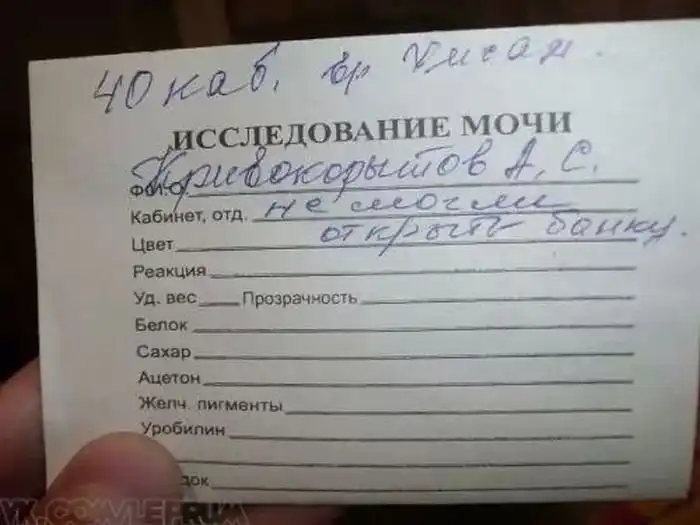 40 каб. вр
ИССЛЕДОВАНИЕ МОЧИ
Ф.И.О. Кривокорытов А. С.
Кабинет, отд. не могли
Цвет открыть банку.
Реакция
Уд. вес Прозрачность
Белок
Сахар
Ацетон
Желч. пигменты
Уробилин
VK.COM/LEPRUM